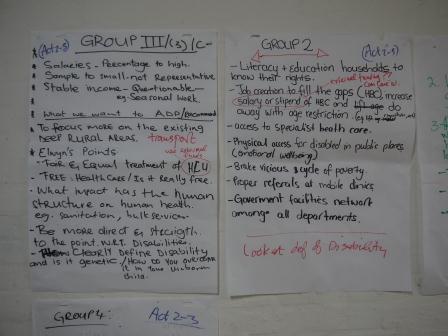 (Act 2-3) GROUP III/(3)/C-
* Salaries - Percentage to high.
* Sample to small - not Representative
* Stable income - Questionable -
eg Seasonal Work
What we want to ADD/Recommend
* To focus more on the existing
need Rural Areas. transport
* Elwyn's Points
- Task eg Equal treatment of HBC
- FREE - Health Care / Is it Really free.
- What impact has the human
structure on human health
eg. sanitation, bulk services.
- Be more direct & straight
to the point. W.R.T. Disabilities.
- Clearly Define Disability
and is it genetic. / How do you overcome
it in your unborn
child.
GROUP 2
(Act 2-3)
- Literacy + Education households to
know their rights.
- Job creation to fill the gaps (HBC) increase
salary or stipend of HBC and do
away with age restriction
- access to specialist health care.
- Physical access for disabled in public places
(emotional wellbeing)
- Brake vicious cycle of poverty.
- Proper referals at mobile clinics
- Government facilities network
among all departments.
Look at def of Disability
GROUP 4: Act 2-3